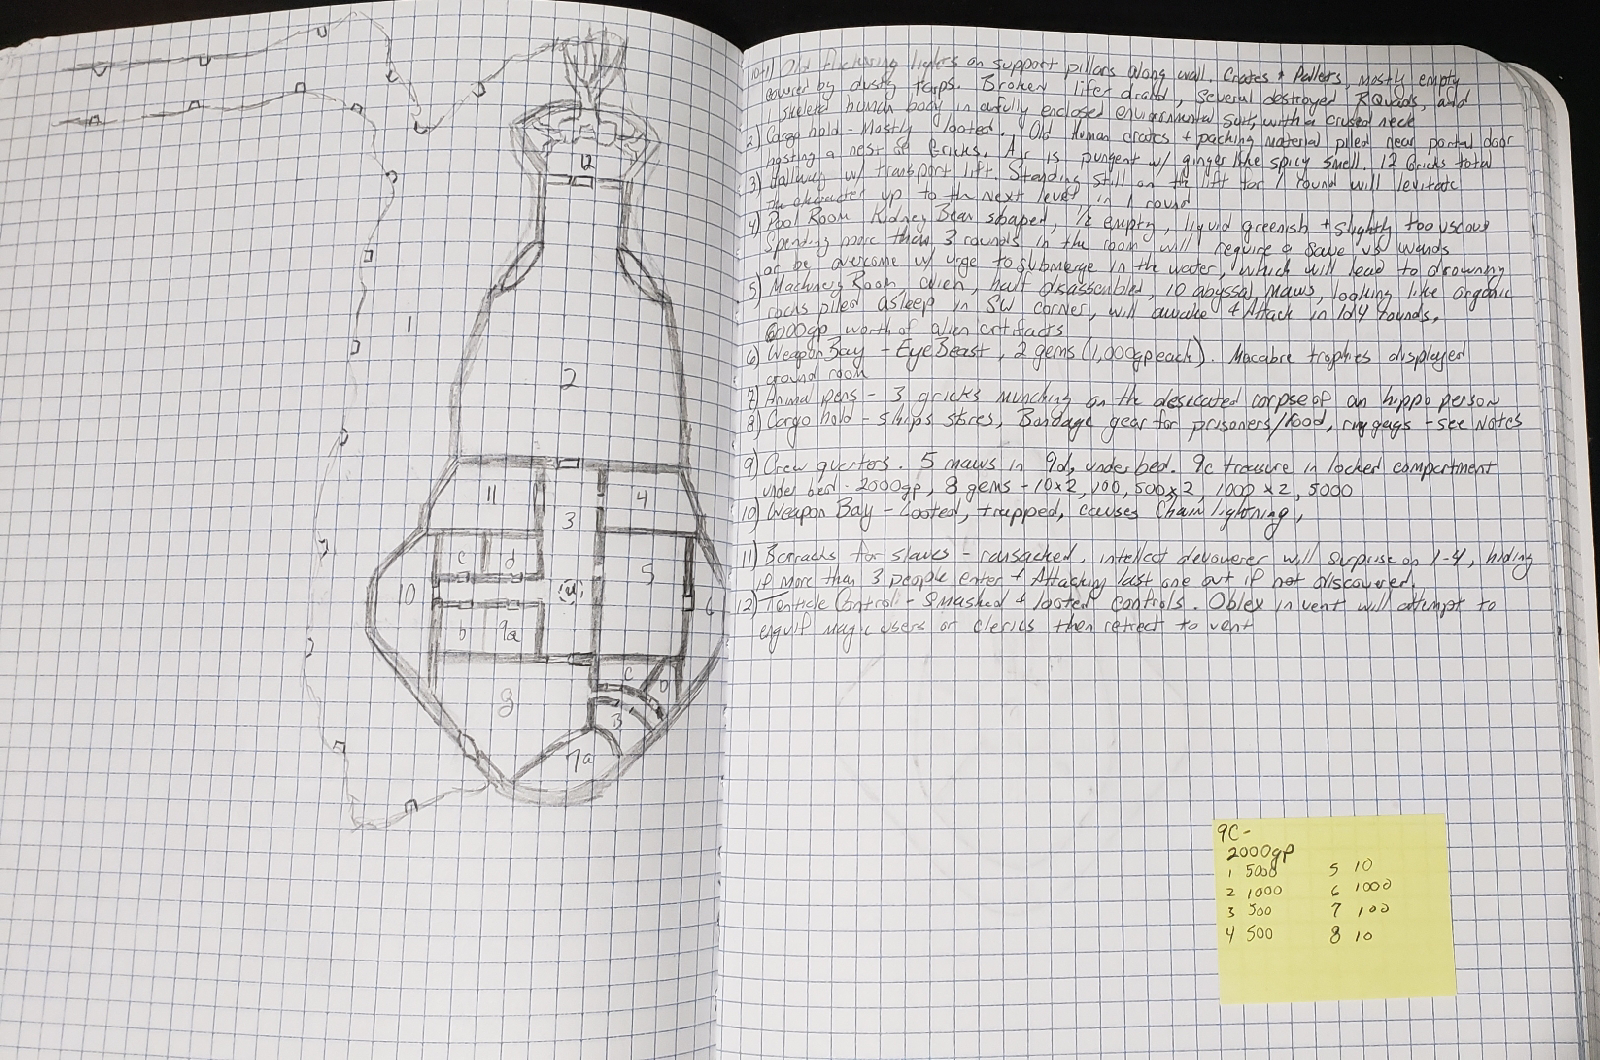 12
1
2
11
4
3
c
d
5
10
u
6
b
9a
C
D
8
B
7a
flickering lights on support pillars along wall. Crates + Pallets, mostly empty
covered by dusty tarps. Broken lifter droid, several destroyed RQuads, and
1 skeletal human body in awfully enclosed environmental suit, with a crused neck
2) Cargo hold - Mostly looted. Old Human crates + packing material piled near portal door
hosting a nest of Gricks. Air is pungent w/ ginger like spicy smell. 12 Gricks total
3) Hallway w/ transport lift. Standing still on the lift for 1 round will levitate
the character up to the next level in 1 round
4) Pool Room Kidney Bean shaped, 1/2 empty, liquid greenish + slightly too viscous
Spending more than 3 rounds in the room will require a Save vs Wands
or be overcome w/ urge to submerge in the water, which will lead to drowning
5) Machinery Room, alien, half disassembled, 10 abyssal maws, looking like organic
rocks piled asleep in SW corner, will awake + Attack in 1d4 rounds,
6000gp worth of alien artifacts
6) Weapon Bay - Eye Beast, 2 gems (1,000gp each). Macabre trophies displayed
around room
7) Animal pens - 3 gricks munching on the desiccated corpse of an hippo person
8) Cargo hold - ships stores, Bondage gear for prisoners/food, gags - see Notes
9) Crew quarters. 5 maws in 9d, under bed. 9c treasure in locked compartment
under bed - 2000gp, 8 gems - 10x2, 100, 500x2, 1000x2, 5000
10) Weapon Bay - Looted, trapped, causes Chain lightning,
11) Barracks for slaves - ransacked, intellect devourer will Surprise on 1-4, hiding
if more than 3 people enter + Attacking last one out if not discovered.
12) Tenticle Control - Smashed + looted controls. Oblex in vent will attempt to
engulf magic users or clerics then retreat to vent
9C-
2000gp
1 5000 5 10
2 1000 6 1000
3 500 7 100
4 500 8 10